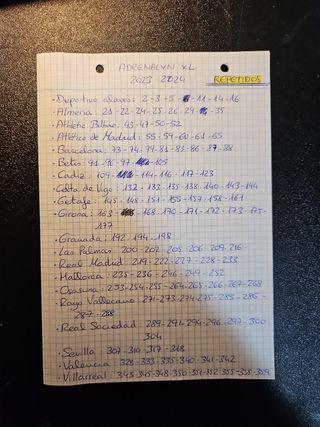 ADRENALYN XL
2023-2024
REPETIDOS
· Deportivo Alaves: 2-3-5- -11-14-16
· Almeria: 21-22-24-25-26-29- -35
· Athletic Bilbao: 43-47-50-52
· Atlético de Madrid: 55-59-60-61-65
· Barcelona: 73-74-79-81-83-86-87-88
· Betis: 91-96-97- -105
· Cadiz: 109- -114-116-117-123
· Celta de Vigo: 132-133-135-138-140-143-144
· Getafe: 145-148-151-155-157-158-161
· Girona: 163- -168-170-171-172-173-175-
177
· Granada: 192-194-198
· Las Palmas: 200-202-205-206-209-216
· Real Madrid: 219-222-227-228-233
· Mallorca: 235-236-246-249-252
· Osasuna: 253-254-255-264-265-266-267-268
· Rayo Vallecano: 271-273-274-275-285-286-
287-288
· Real Sociedad: 289-291-294-296-297-300
304
· Sevilla: 307-310-317-318
· Valencia: 328-333-335-340-341-342
· Villarreal: 343-345-348-350-351-352-353-358-359